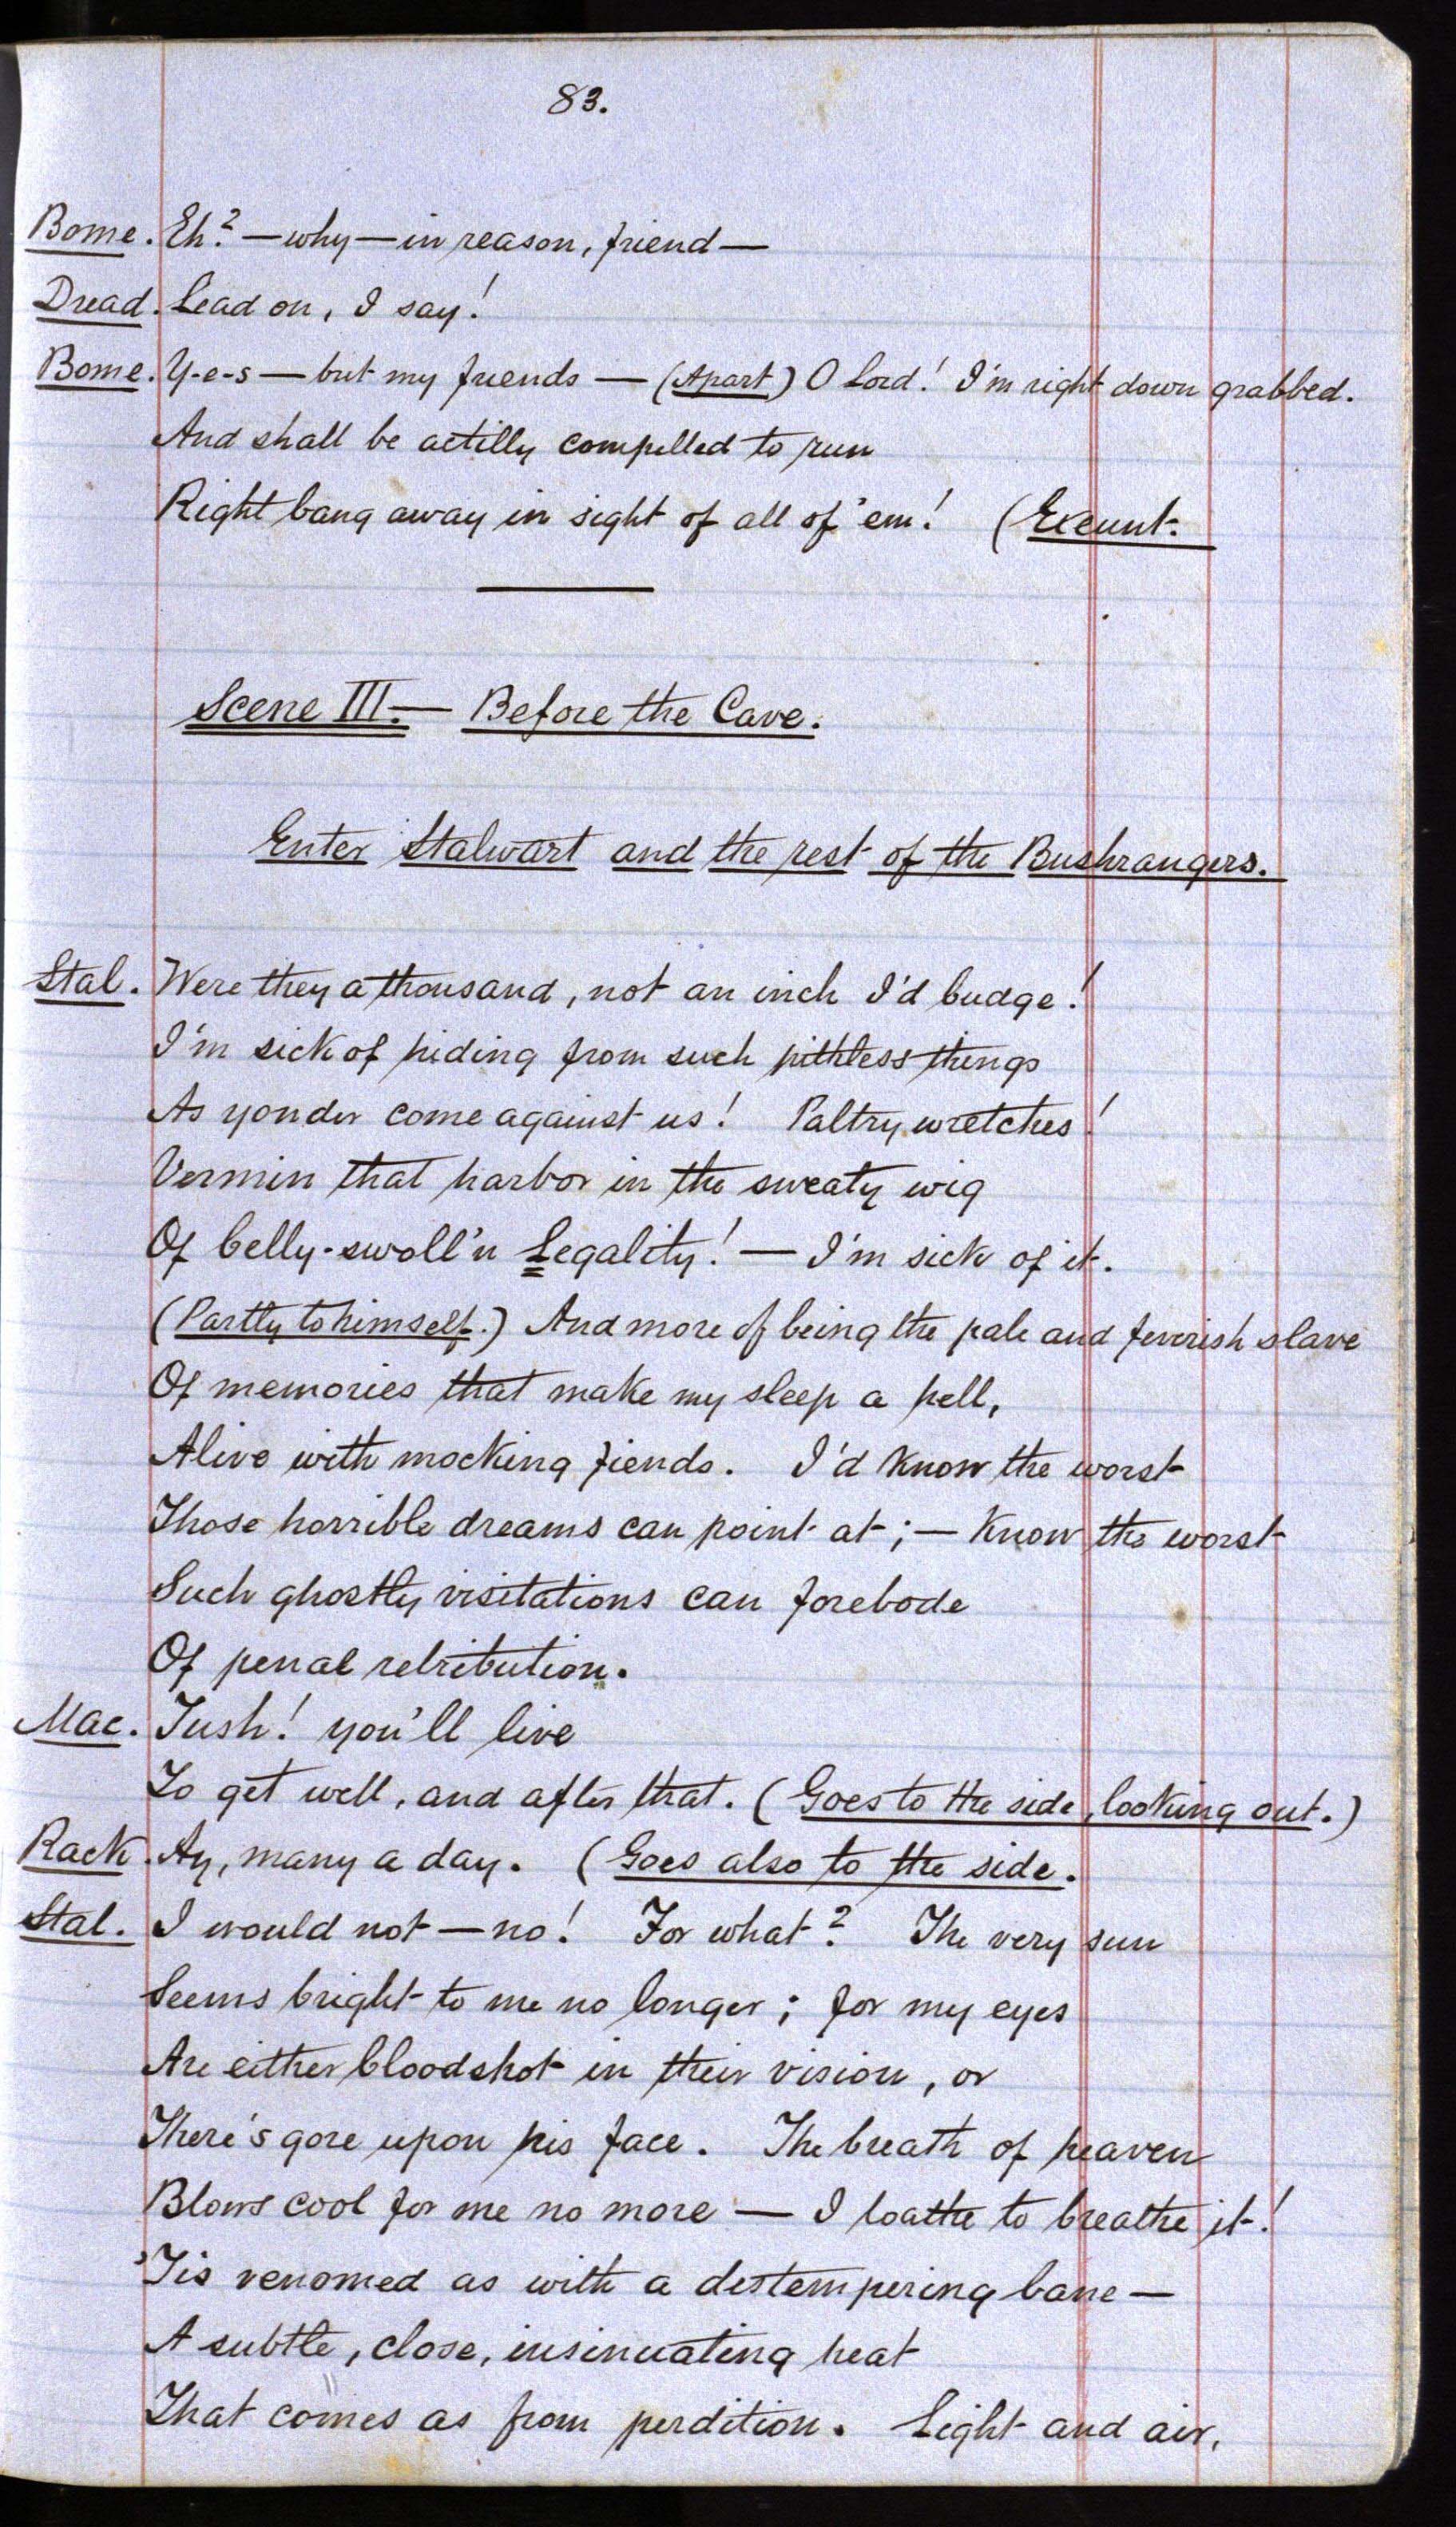 83.
Bome. Eh? — why — in reason, friend —
Dread. Lead on, I say!
Bome. Y-e-s — but my friends — (Apart) O Lord! I'm right down grabbed.
And shall be actilly compelled to run
Right bang away in sight of all of 'em! (Exeunt.
Scene III. — Before the Cave.
Enter Stalwart and the rest of the Bushrangers.
Stal. Were they a thousand, not an inch I'd budge!
I'm sick of hiding from such pithless things
As yonder come against us! Paltry wretches!
Vermin that harbor in the sweaty wig
Of belly-swoll'n Legality! — I'm sick of it.
(Partly to himself.) And more of being the pale and feverish slave
Of memories that make my sleep a hell,
Alive with mocking fiends. I'd know the worst
Those horrible dreams can point at; — know the worst
Such ghostly visitations can forebode
Of penal retribution.
Mac. Tush! you'll live
To get well, and after that. (Goes to the side, looking out.)
Rack. Ay, many a day. (Goes also to the side.
Stal. I would not — no! For what? The very sun
Seems bright to me no longer; for my eyes
Are either bloodshot in their vision, or
There's gore upon his face. The breath of heaven
Blows cool for me no more — I loathe to breathe it!
'Tis venomed as with a destempering bane —
A subtle, close, insinuating heat
That comes as from perdition. Light and air,